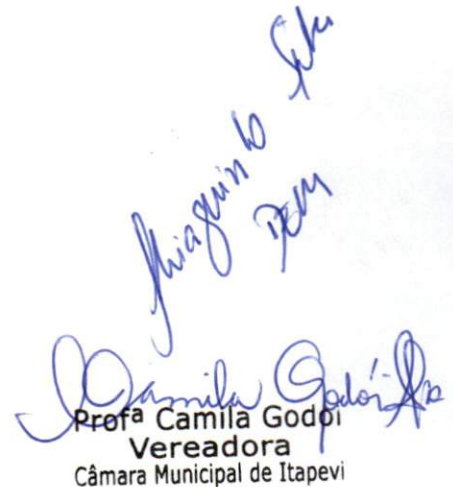 Thiaguinho Silva
DEM
Camila Godói
Profª Camila Godoi
Vereadora
Câmara Municipal de Itapevi